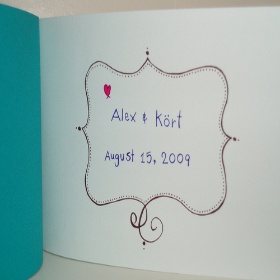 Alex & Kört
August 15, 2009